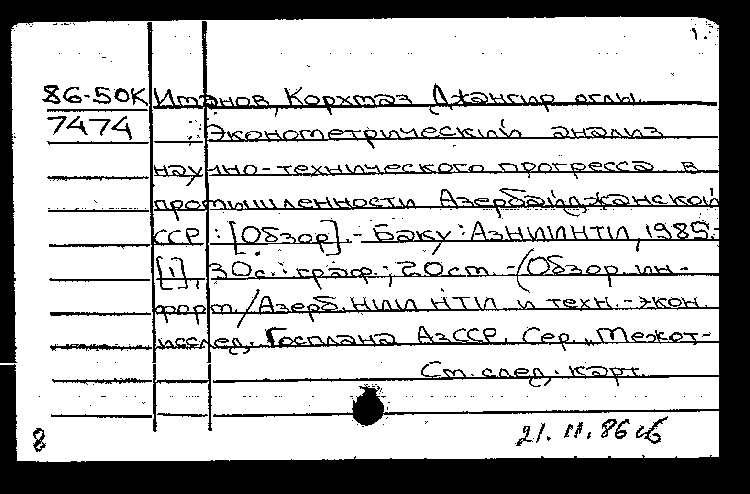 1.
86-50К Иманов, Корхмаз Джангир оглы.
7474 Эконометрический анализ
научно-технического прогресса в
промышленности Азербайджанской
ССР : [Обзор]. - Баку : АзНИИНТИ, 1985.-
[1], 30 с. : граф. ; 20 см. - (Обзор. ин-
форм. / Азерб. НИИ НТИ и техн.-экон.
исслед. Госплана АзССР. Сер. „Межот-
См. след. карт.
8 21.11.86